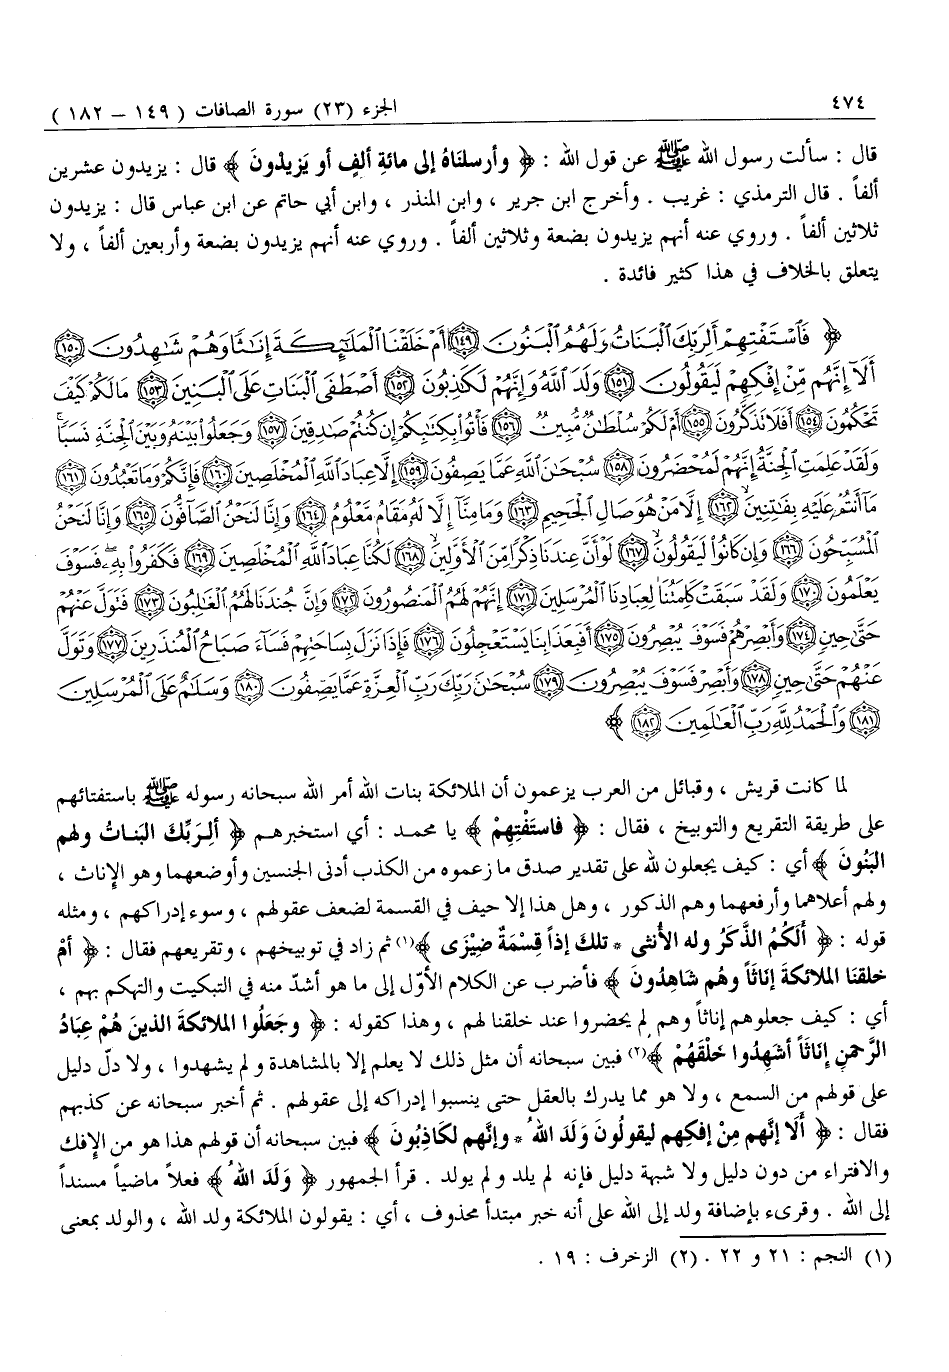 ٤٧٤ الجزء (٢٣) سورة الصافات ( ١٤٩ – ١٨٢ )
قال : سألت رسول الله ﷺ عن قول الله : ﴿ وأرسلناهُ إلى مائةِ ألفٍ أو يَزيدُونَ ﴾ قال : يزيدون عشرين
ألفاً . قال الترمذي : غريب . وأخرج ابن جرير ، وابن المنذر ، وابن أبي حاتم عن ابن عباس قال : يزيدون
ثلاثين ألفاً . وروي عنه أنهم يزيدون بضعة وثلاثين ألفاً . وروي عنه أنهم يزيدون بضعة وأربعين ألفاً ، ولا
يتعلق بالخلاف في هذا كثير فائدة .
﴿ فَاسْتَفْتِهِمْ أَلِرَبِّكَ الْبَنَاتُ وَلَهُمُ الْبَنُونَ ﴿١٤٩﴾ أَمْ خَلَقْنَا الْمَلَٰٓئِكَةَ إِنَاثًا وَهُمْ شَاهِدُونَ ﴿١٥٠﴾
أَلَآ إِنَّهُم مِّنْ إِفْكِهِمْ لَيَقُولُونَ ﴿١٥١﴾ وَلَدَ اللَّهُ وَإِنَّهُمْ لَكَاذِبُونَ ﴿١٥٢﴾ أَصْطَفَى الْبَنَاتِ عَلَى الْبَنِينَ ﴿١٥٣﴾ مَا لَكُمْ كَيْفَ
تَحْكُمُونَ ﴿١٥٤﴾ أَفَلَا تَذَكَّرُونَ ﴿١٥٥﴾ أَمْ لَكُمْ سُلْطَانٌ مُّبِينٌ ﴿١٥٦﴾ فَأْتُوا بِكِتَابِكُمْ إِن كُنتُمْ صَادِقِينَ ﴿١٥٧﴾ وَجَعَلُوا بَيْنَهُ وَبَيْنَ الْجِنَّةِ نَسَبًا ۚ
وَلَقَدْ عَلِمَتِ الْجِنَّةُ إِنَّهُمْ لَمُحْضَرُونَ ﴿١٥٨﴾ سُبْحَانَ اللَّهِ عَمَّا يَصِفُونَ ﴿١٥٩﴾ إِلَّا عِبَادَ اللَّهِ الْمُخْلَصِينَ ﴿١٦٠﴾ فَإِنَّكُمْ وَمَا تَعْبُدُونَ ﴿١٦١﴾
مَآ أَنتُمْ عَلَيْهِ بِفَاتِنِينَ ﴿١٦٢﴾ إِلَّا مَنْ هُوَ صَالِ الْجَحِيمِ ﴿١٦٣﴾ وَمَا مِنَّآ إِلَّا لَهُ مَقَامٌ مَّعْلُومٌ ﴿١٦٤﴾ وَإِنَّا لَنَحْنُ الصَّآفُّونَ ﴿١٦٥﴾ وَإِنَّا لَنَحْنُ
الْمُسَبِّحُونَ ﴿١٦٦﴾ وَإِن كَانُوا لَيَقُولُونَ ﴿١٦٧﴾ لَوْ أَنَّ عِندَنَا ذِكْرًا مِّنَ الْأَوَّلِينَ ﴿١٦٨﴾ لَكُنَّا عِبَادَ اللَّهِ الْمُخْلَصِينَ ﴿١٦٩﴾ فَكَفَرُوا بِهِ ۖ فَسَوْفَ
يَعْلَمُونَ ﴿١٧٠﴾ وَلَقَدْ سَبَقَتْ كَلِمَتُنَا لِعِبَادِنَا الْمُرْسَلِينَ ﴿١٧١﴾ إِنَّهُمْ لَهُمُ الْمَنصُورُونَ ﴿١٧٢﴾ وَإِنَّ جُندَنَا لَهُمُ الْغَالِبُونَ ﴿١٧٣﴾ فَتَوَلَّ عَنْهُمْ
حَتَّىٰ حِينٍ ﴿١٧٤﴾ وَأَبْصِرْهُمْ فَسَوْفَ يُبْصِرُونَ ﴿١٧٥﴾ أَفَبِعَذَابِنَا يَسْتَعْجِلُونَ ﴿١٧٦﴾ فَإِذَا نَزَلَ بِسَاحَتِهِمْ فَسَآءَ صَبَاحُ الْمُنذَرِينَ ﴿١٧٧﴾ وَتَوَلَّ
عَنْهُمْ حَتَّىٰ حِينٍ ﴿١٧٨﴾ وَأَبْصِرْ فَسَوْفَ يُبْصِرُونَ ﴿١٧٩﴾ سُبْحَانَ رَبِّكَ رَبِّ الْعِزَّةِ عَمَّا يَصِفُونَ ﴿١٨٠﴾ وَسَلَامٌ عَلَى الْمُرْسَلِينَ
﴿١٨١﴾ وَالْحَمْدُ لِلَّهِ رَبِّ الْعَالَمِينَ ﴿١٨٢﴾ ﴾
لما كانت قريش ، وقبائل من العرب يزعمون أن الملائكة بنات الله أمر الله سبحانه رسوله ﷺ باستفتائهم
على طريقة التقريع والتوبيخ ، فقال : ﴿ فاستَفْتِهِمْ ﴾ يا محمد : أي استخبرهم ﴿ ألِرَبِّكَ البَناتُ ولهم
البَنُونَ ﴾ أي : كيف يجعلون لله على تقدير صدق ما زعموه من الكذب أدنى الجنسين وأوضعهما وهو الإناث ،
ولهم أعلاهما وأرفعهما وهم الذكور ، وهل هذا إلا حيف في القسمة لضعف عقولهم ، وسوء إدراكهم ، ومثله
قوله : ﴿ أَلَكُمُ الذَّكَرُ وله الأنثى * تلكَ إذاً قِسْمَةٌ ضِيْزَى ﴾(١) ثم زاد في توبيخهم ، وتقريعهم فقال : ﴿ أمْ
خلقنا الملائكةَ إناثاً وهُم شاهدُونَ ﴾ فأضرب عن الكلام الأوّل إلى ما هو أشدّ منه في التبكيت والتهكم بهم ،
أي : كيف جعلوهم إناثاً وهم لم يحضروا عند خلقنا لهم ، وهذا كقوله : ﴿ وجَعَلُوا الملائكةَ الذينَ هُمْ عِبَادُ
الرَّحمنِ إنَاثاً أشَهِدُوا خَلْقَهُمْ ﴾(٢) فبين سبحانه أن مثل ذلك لا يعلم إلا بالمشاهدة ولم يشهدوا ، ولا دلّ دليل
على قولهم من السمع ، ولا هو مما يدرك بالعقل حتى ينسبوا إدراكه إلى عقولهم . ثم أخبر سبحانه عن كذبهم
فقال : ﴿ أَلَا إنَّهم مِنْ إفكِهِم ليقولُونَ وَلَدَ اللهُ * وإنَّهم لكَاذِبُونَ ﴾ فبين سبحانه أن قولهم هذا هو من الإفك
والافتراء من دون دليل ولا شبهة دليل فإنه لم يلد ولم يولد . قرأ الجمهور ﴿ وَلَدَ اللهُ ﴾ فعلاً ماضياً مسنداً
إلى الله . وقرىء بإضافة ولد إلى الله على أنه خبر مبتدأ محذوف ، أي : يقولون الملائكة ولد الله ، والولد بمعنى
(١) النجم : ٢١ و ٢٢ . (٢) الزخرف : ١٩ .